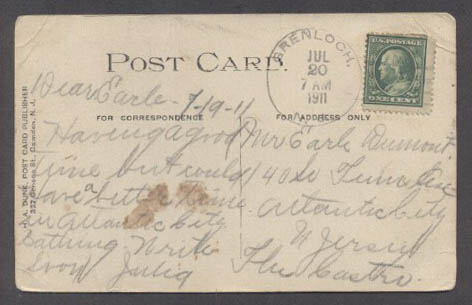 POST CARD.
GRENLOCH,
JUL
20
7 AM
1911
U.S. POSTAGE
ONE CENT
FOR CORRESPONDENCE
FOR ADDRESS ONLY
POST CARD PUBLISHER
St. Camden, N. J.
Dear Earle - 7-19-11
Having a good
time but could
have a better time
in Atlantic City
bathing Write
soon Julia
Mr Earle Dumont
Ave
Atlantic City
N Jersey
The Castro.